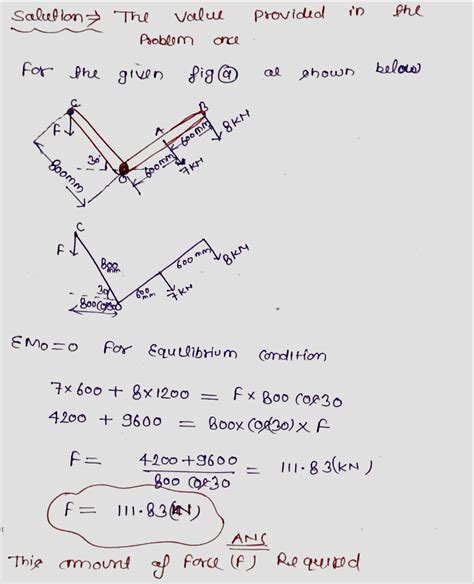 Solution → The value provided in the
Problem are
For the given fig (a) as shown below
C
F
30°
800mm
O
A
B
600mm
600mm
7KN
8KN
C
F
800
mm
30
800 cos30
O
600
mm
600mm
7KN
8KN
ΣMo=0 For Equilibrium condition
7×600 + 8×1200 = F×800 cos30
4200 + 9600 = 800×cos(30)×F
F = 4200+9600 / 800 cos30 = 111.83(KN)
F = 111.83(KN)
ANS
This amount of Force (F) Required